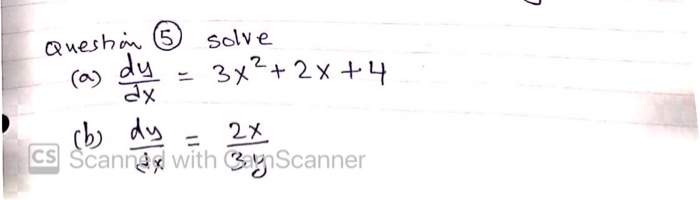 Question ⑤ solve
(a) dy/dx = 3x² + 2x + 4
(b) dy/dx = 2x/3y
CS Scanned with CamScanner